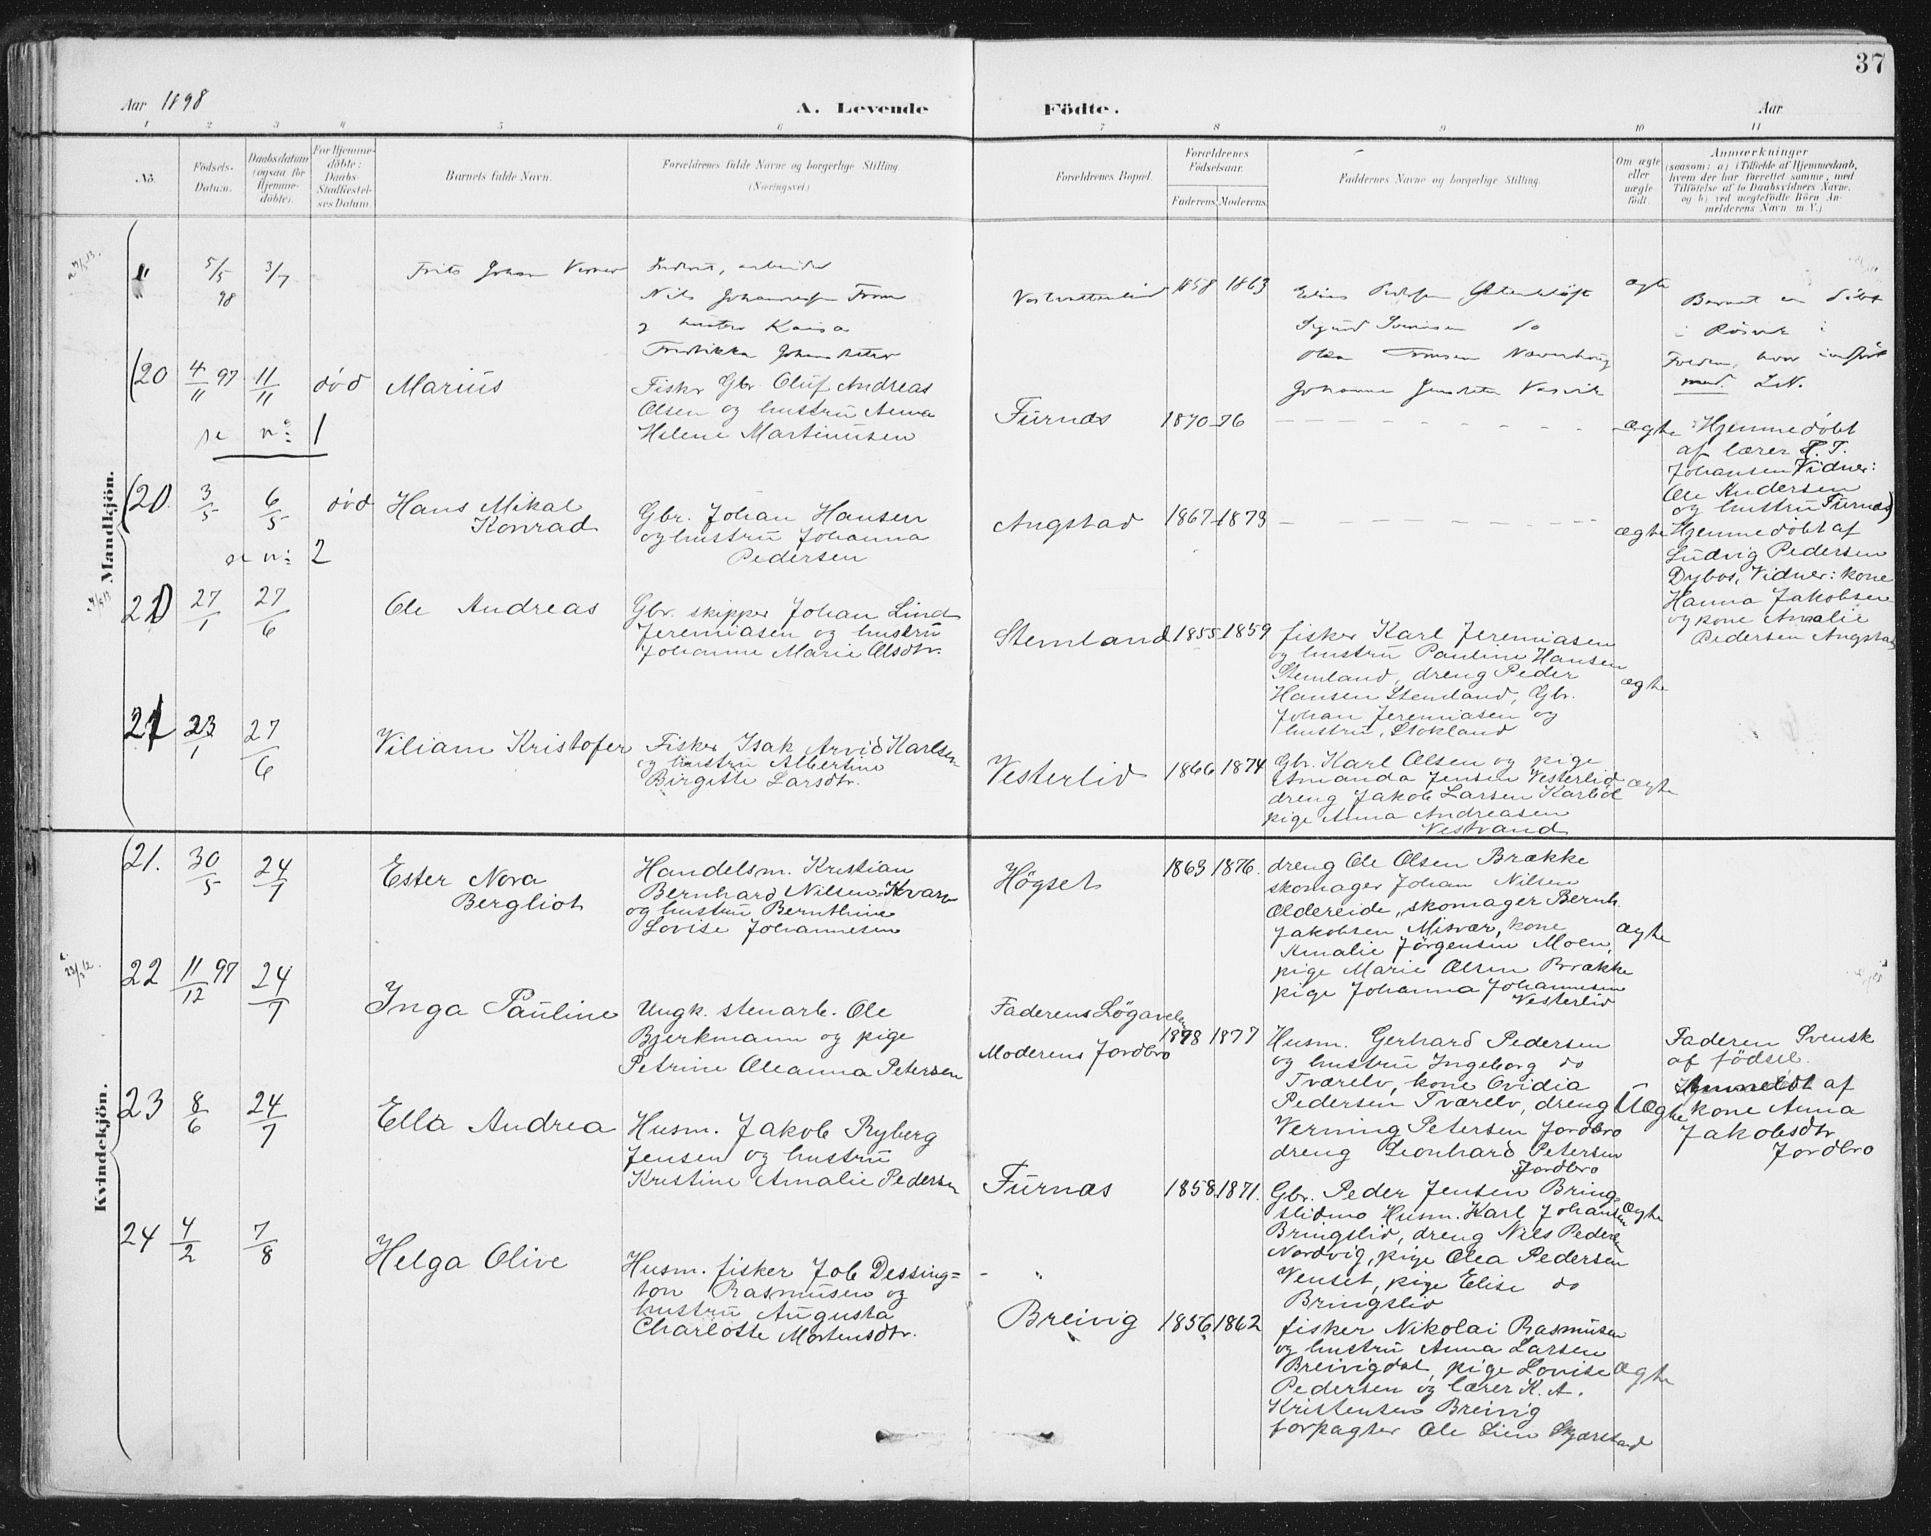 37
Aar 1898
A. Levende
Födte.
Aar
1 2 3 4 5 6 7 8 9 10 11
No.
Födsels-
Datum.
Daabsdatum
(ogsaa for
Hjemme-
döbte).
For Hjemme-
döbte:
Daabs-
Stadfæstel-
ses Datum.
Barnets fulde Navn.
Forældrenes fulde Navne og borgerlige Stilling.
(Næringsvei)
Forældrenes Bopæl.
Forældrenes
Födselsaar.
Faderens. Moderens.
Faddernes Navne og borgerlige Stilling.
Om ægte
eller
uægte
födt.
Anmærkninger
(saasom: a) i Tilfælde af Hjemmedaab,
hvem der har forrettet samme, med
Tilföielse af to Daabsvidners Navne,
og b) ved uægtefödte Börn An-
melderens Navn m. V.)
Mandkjön.
" 5/5 98 3/7
Frits Johan Verner
Inderst, arbeider
Nils Johannesen From
og hustru Kaisa
Fredrikka Johansdatter
1858 1863
Sigurd do
Olsa Tomsen Naverhaug
Johanna
ægte
Barnet er döbt
i Rösvik i
Folden, hvor indfört
med L.N.
(20 4/11 97 11/11 död
se no: 1
Marius
Fisker Gbr. Oluf Andreas
Olsen og hustru Anna
Helene Martinusen
Furnes
1870-76
ægte
Hjemmedöbt
af lærer T. T.
Johansen Vidner:
Ole Andersen
og hustru Furnes)
(20. 3/5 6/5 död
se no: 2
Hans Mikal
Konrad
Gbr. Johan Hansen
og hustru Johanna
Pedersen
Angstad
1867-1873
ægte
Hjemmedöbt af
Ludvig Pedersen
Dybos, Vidner: kone
Hanna Jakobsen
og kone Amalie
Pedersen Angstad
20 27/1 27/6
Ole Andreas
Gbr. skipper Johan Lind
Jeremiasen og hustru
Johanne Marie Olsdtr.
Stemland
1855 1859
fisker Karl Jeremiasen
og hustru Pauline Hansen
Stemland, dreng Peder
Hansen Stemland, Gbr.
Johan Jeremiasen og
hustru, Stokland
ægte
21 23/1 27/6
Viliam Kristofer
Fisker Isak Arvid Karlsen
og hustru Albertine
Birgitte Larsdtr.
Vesterlid
1866 1874
Gbr. Karl Olsen og pige
Amanda Jensen Vesterlid
dreng Jakob Larsen Karbøl
pige Anna Andreasen
Vestvand
ægte
Kvindekjön.
21. 30/5 24/7
Ester Nora
Bergliot
Handelsm. Kristian
Bernhard Nilsen Kvarv
og hustru Bernthine
Lovise Johannesen
Högset
1863 1876.
dreng Ole Olsen Brække
skomager Johan Nilsen
Oldereide, skomager Bernh.
Jakobsen Misvær, kone
Amalie Jörgensen Moen,
pige Marie Olsen Brække
pige Johanna Johannesen
Vesterlid
ægte
22 11/12 97 24/7
Inga Pauline
Ungk. stenarb. Ole
Bjerkmann og pige
Petrine Oleanna Petersen
Faderens Lögavelen
Moderens Jordbro
1878 1877
Husm. Gerhard Pedersen
og hustru Ingeborg do
Tværelv, kone Ovidia
Pedersen Tværelv, dreng
Verning Petersen Jordbro
dreng Leonhard Petersen
Jordbro
Uægte
Faderen Svensk
af födsel.
Anmeldt af
kone Anna
Jakobsdtr
Jordbro
23 8/6 24/7
Ella Andrea
Husm. Jakob Ryberg
Jensen og hustru
Kristine Amalie Pedersen
Furnes
1858. 1871.
Gbr. Peder Jensen Bring-
slidmo Husm. Karl Johansen
Bringslid, dreng Nils Pedersen
Nordvig, pige Olea Pedersen
Venset, pige Elise do
Bringslid
ægte
24 4/2 7/8
Helga Olive
Husm. fisker Job Dessing=
ton Rasmusen og
hustru Augusta
Charlotte Mortensdtr.
Breivig
1856 1862
fisker Nikolai Rasmusen
og hustru Anna Larsen
Breivigdal, pige Lovise
Pedersen og lærer K. A.
Kristensen Breivig
forpagter Ole Lien Skjærstad
ægte